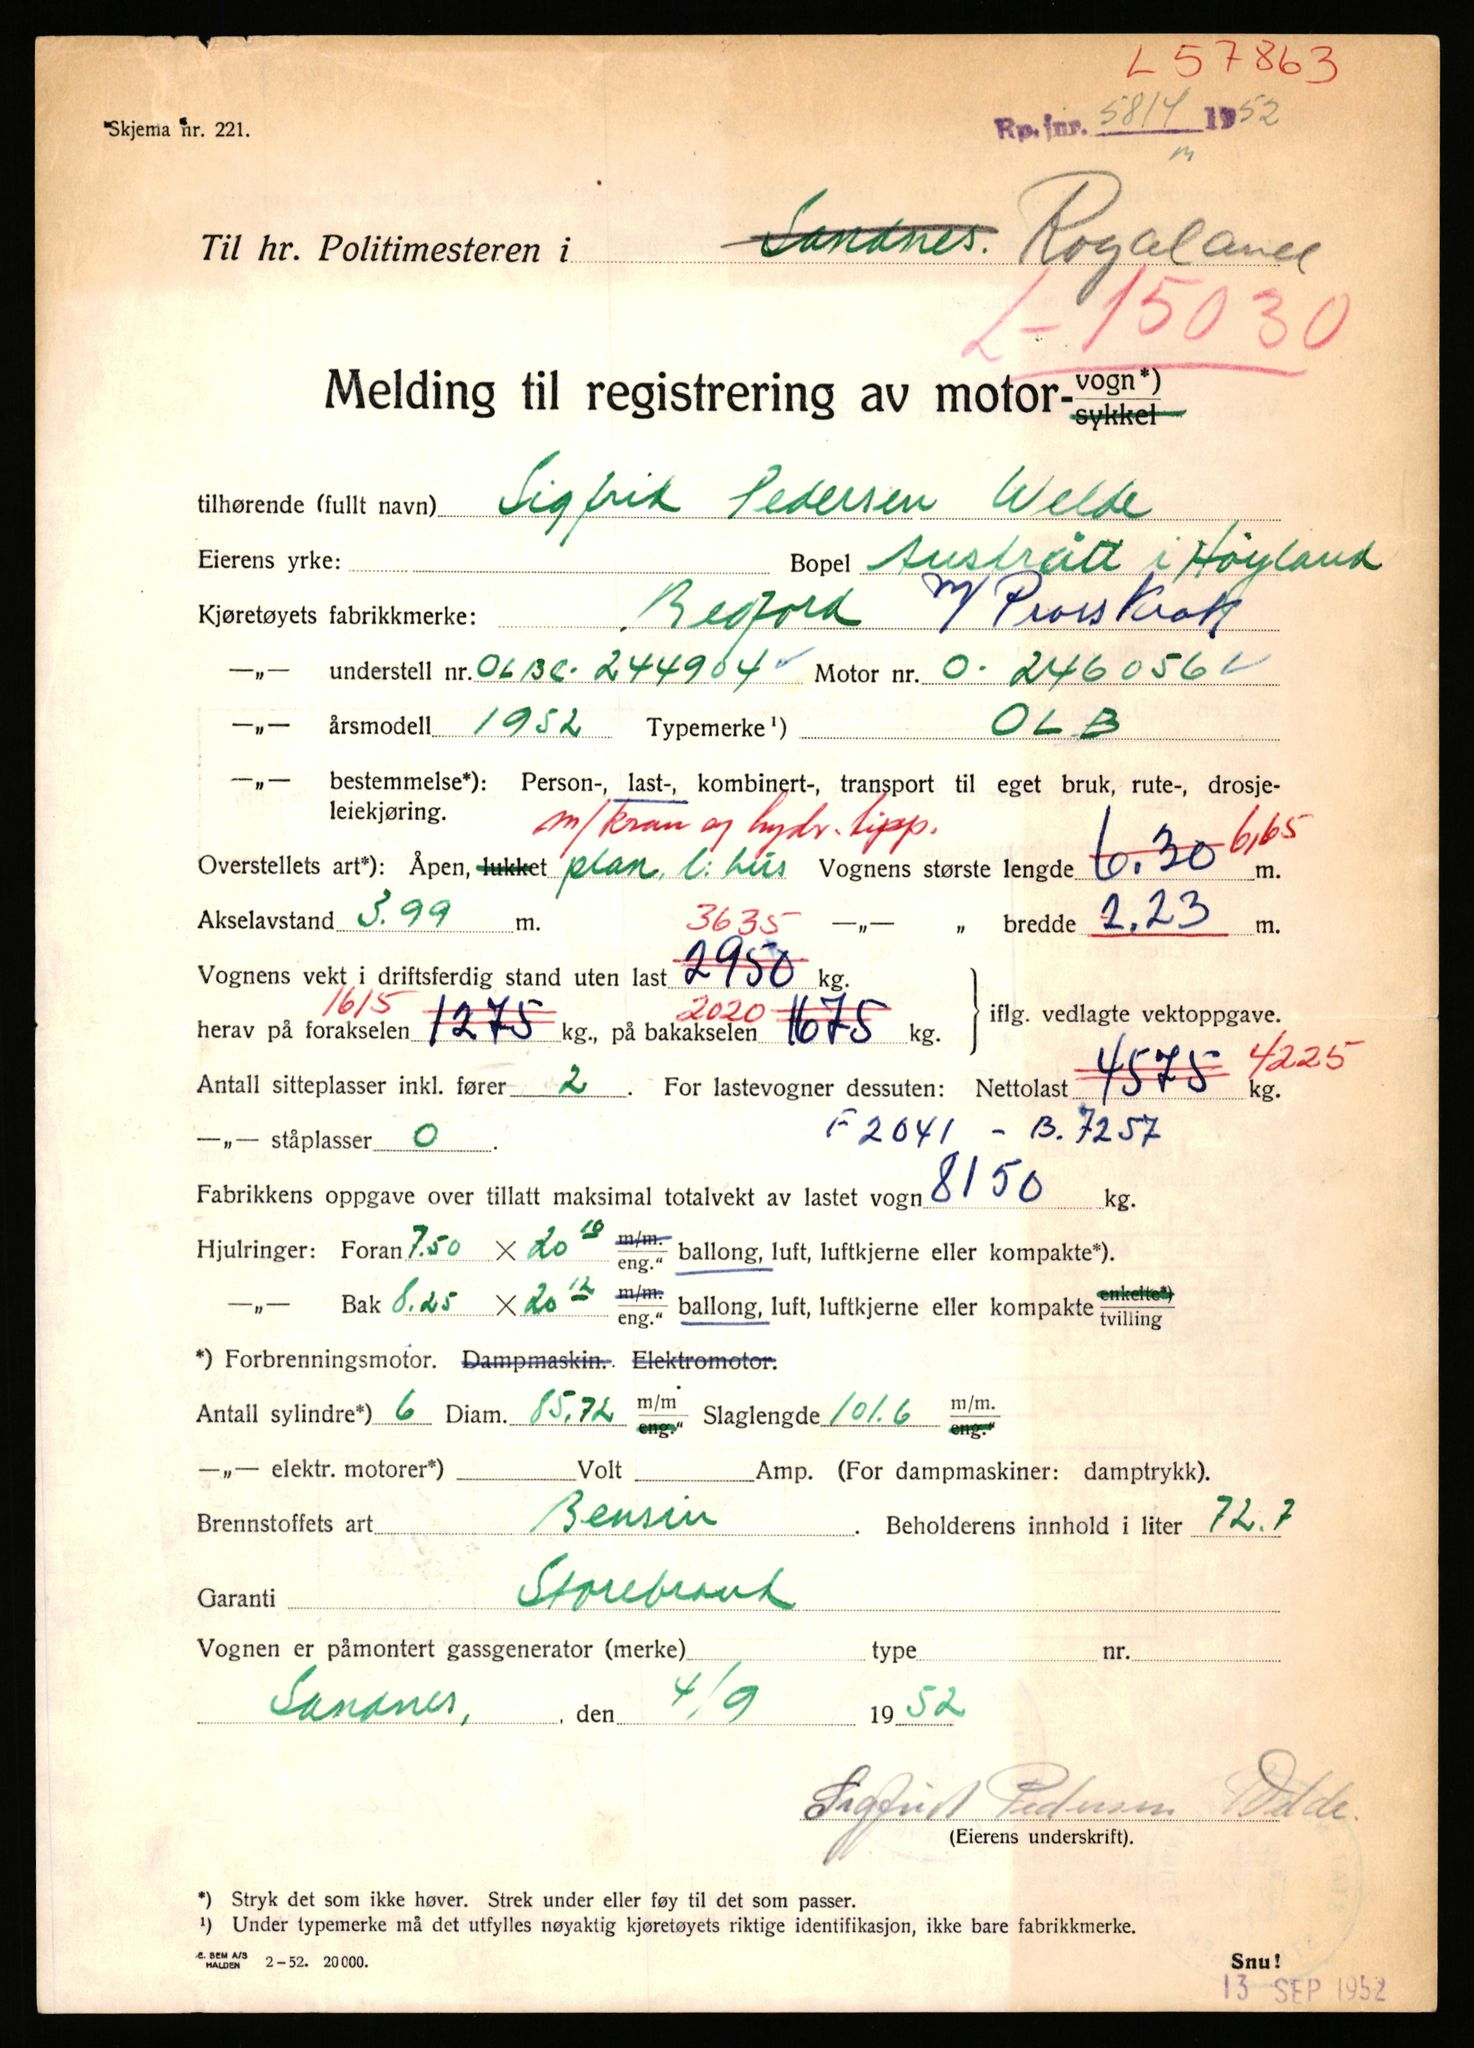 L 57863
Skjema nr. 221.
Rp. jnr. 5814 1952
m
Til hr. Politimesteren i Sandnes. Rogaland
L-15030
Melding til registrering av motor-vogn*)
sykkel
tilhørende (fullt navn) Sigfrid Pedersen Welde
Eierens yrke: Bopel Austrått i Høyland
Kjøretøyets fabrikkmerke: Bedford m/
—„— understell nr. OLBC. 244904 Motor nr. 0. 246056
—„— årsmodell 1952 Typemerke¹) OLB
—„— bestemmelse*): Person-, last-, kombinert-, transport til eget bruk, rute-, drosje-
leiekjøring. m/kran og hydr. tipp.
6,65
Overstellets art*): Åpen, lukket plan, l: hus Vognens største lengde 6.30 m.
Akselavstand 3.99 m. —„— „ bredde 2.23 m.
3635
Vognens vekt i driftsferdig stand uten last 2950 kg.
1615 2020
herav på forakselen 1275 kg., på bakakselen 1675 kg. iflg. vedlagte vektoppgave.
Antall sitteplasser inkl. fører 2. For lastevogner dessuten: Nettolast 4575 kg. 4225
—„— ståplasser 0. F 2041 - B. 7257
Fabrikkens oppgave over tillatt maksimal totalvekt av lastet vogn 8150 kg.
Hjulringer: Foran 7.50 × 20 10 m/m. eng." ballong, luft, luftkjerne eller kompakte*).
—„— Bak 8.25 × 20 12 m/m. eng." ballong, luft, luftkjerne eller kompakte enkelte*) tvilling
*) Forbrenningsmotor. Dampmaskin. Elektromotor.
Antall sylindre*) 6 Diam. 85,72 m/m eng." Slaglengde 101.6 m/m. eng."
—„— elektr. motorer*) Volt Amp. (For dampmaskiner: damptrykk).
Brennstoffets art Bensin. Beholderens innhold i liter 72.7
Garanti Storebrand
Vognen er påmontert gassgenerator (merke) type nr.
Sandnes, den 4/9 1952
Sigfrid Pedersen Welde.
(Eierens underskrift).
*) Stryk det som ikke høver. Strek under eller føy til det som passer.
¹) Under typemerke må det utfylles nøyaktig kjøretøyets riktige identifikasjon, ikke bare fabrikkmerke.
E. SEM A/S HALDEN 2-52. 20 000.
Snu!
13 SEP 1952